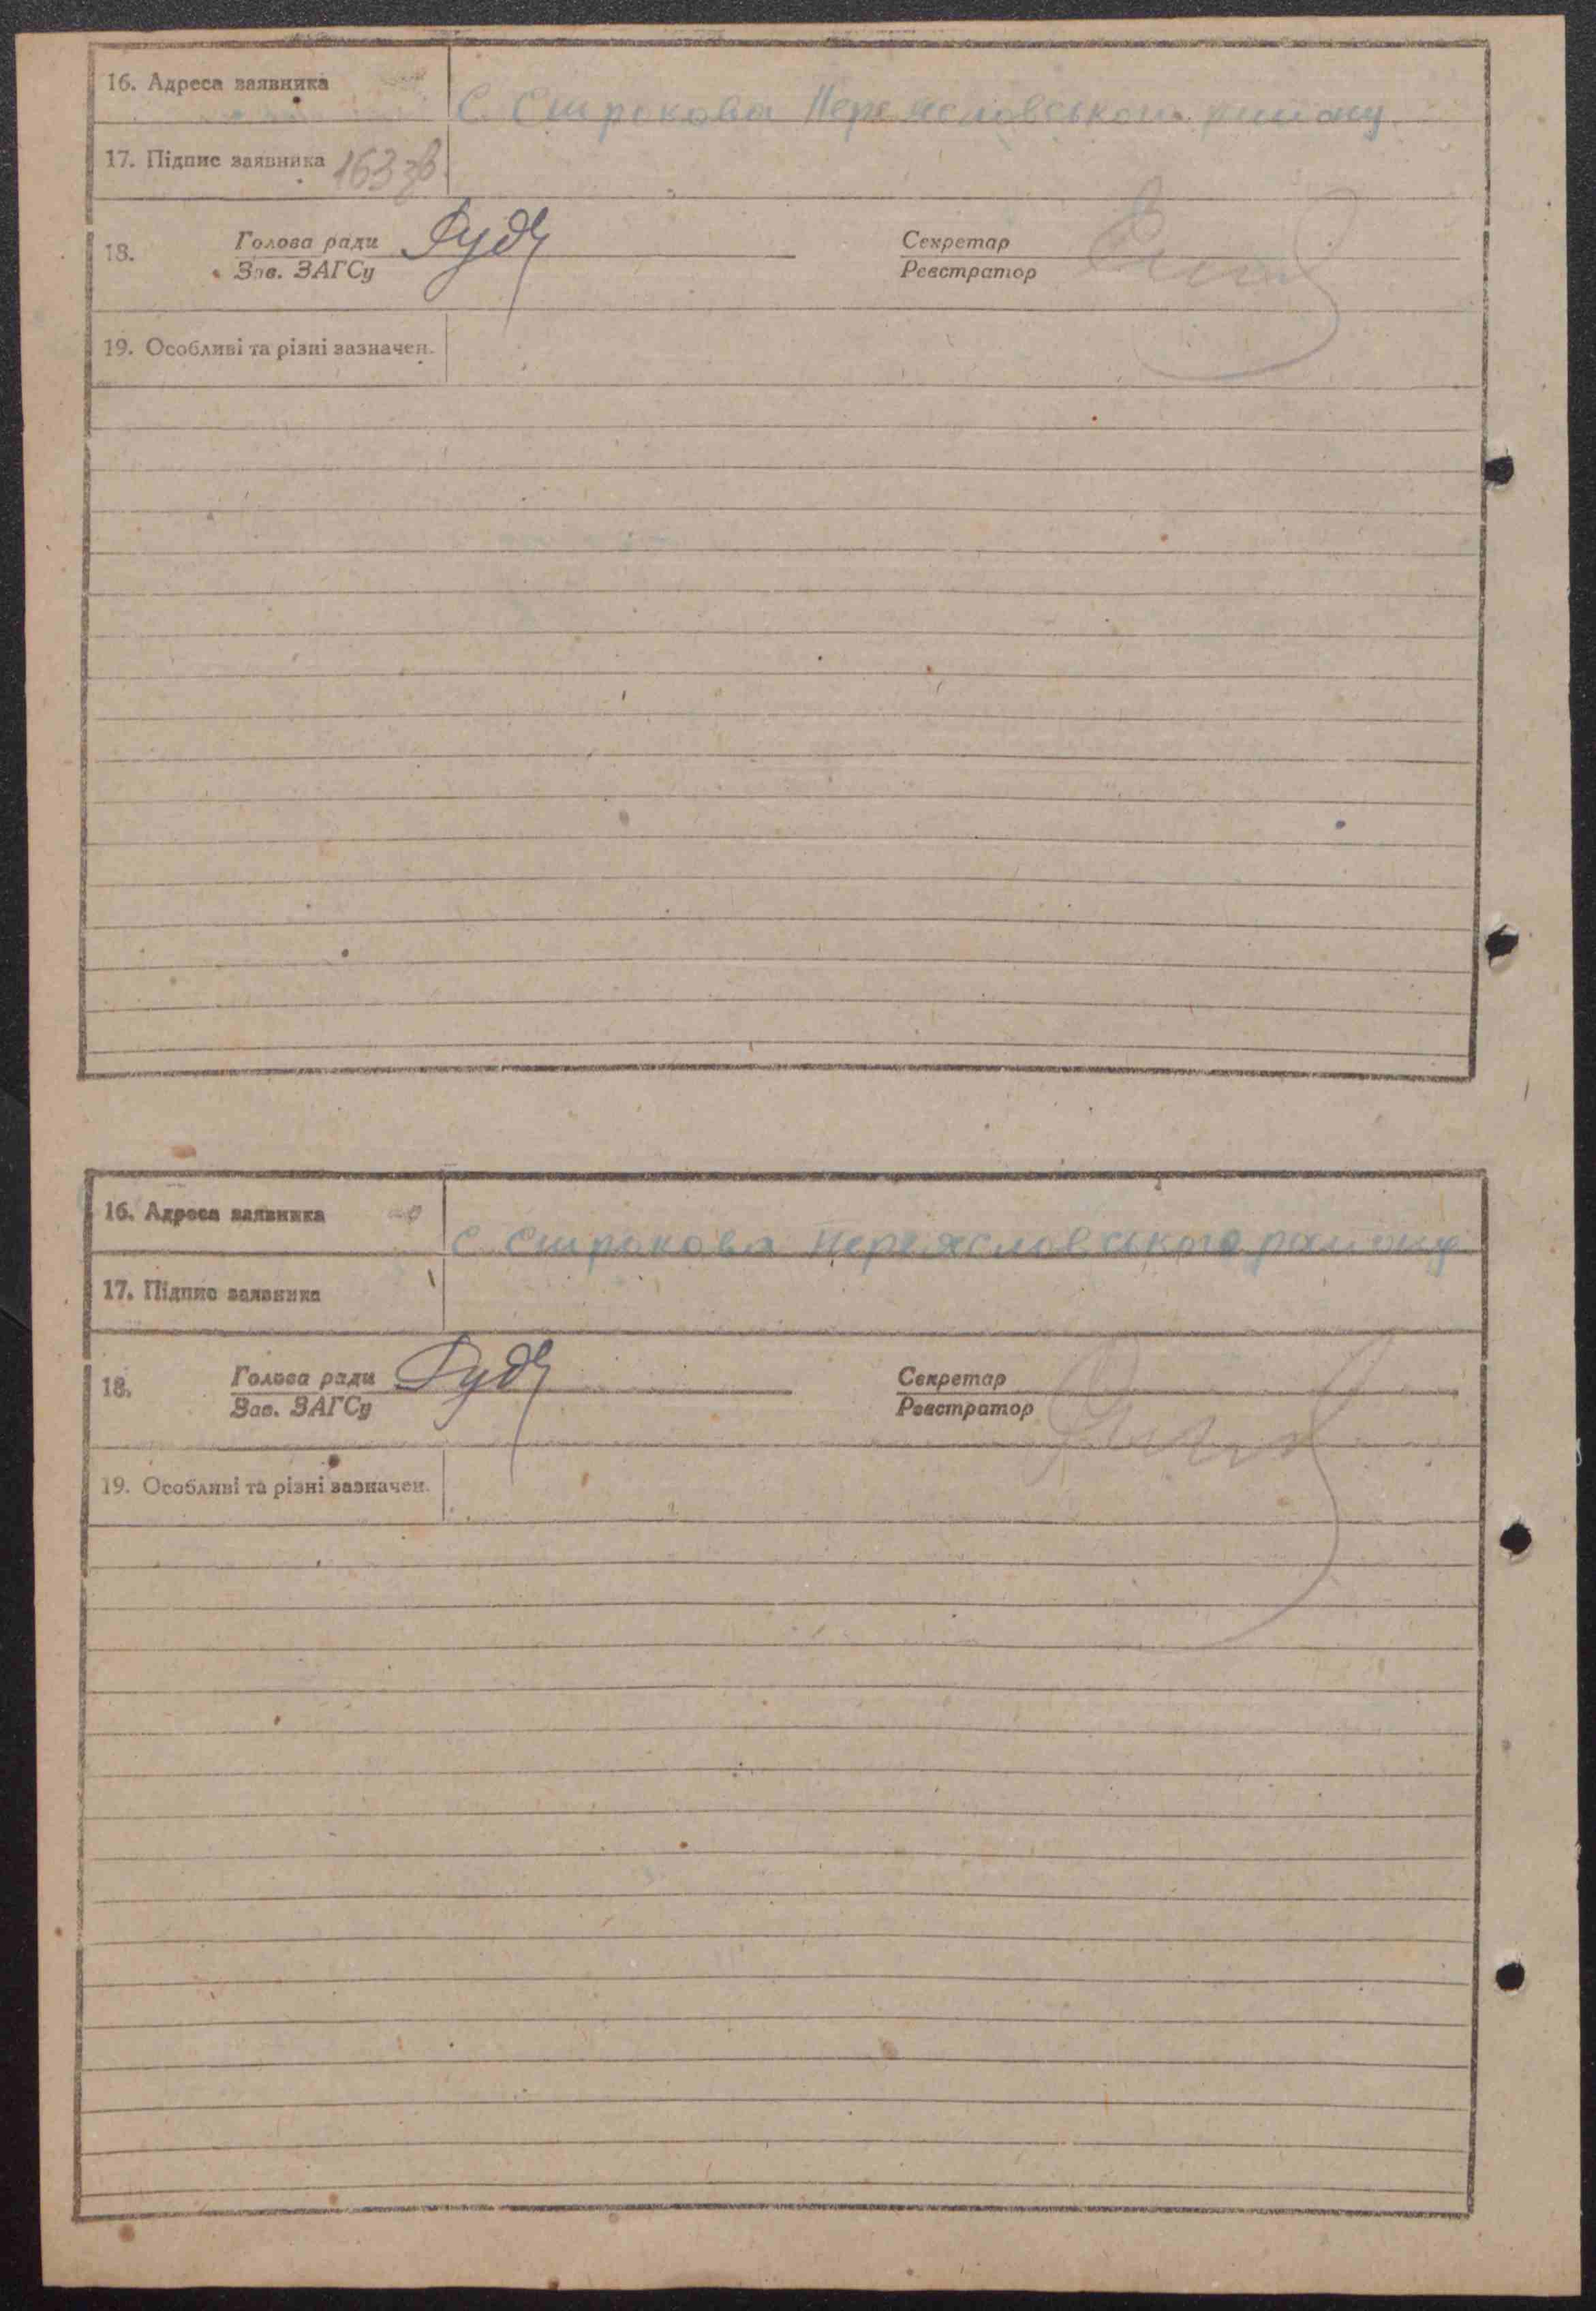 16. Адреса заявника
С. Строкова Переяславського району
17. Підпис заявника 163 зв
18. Голова ради Секретар
Зав. ЗАГСу Реєстратор
19. Особливі та різні зазначен.
16. Адреса заявника
С. Строкова Переяславського району
17. Підпис заявника
18. Голова ради Секретар
Зав. ЗАГСу Реєстратор
19. Особливі та різні зазначен.